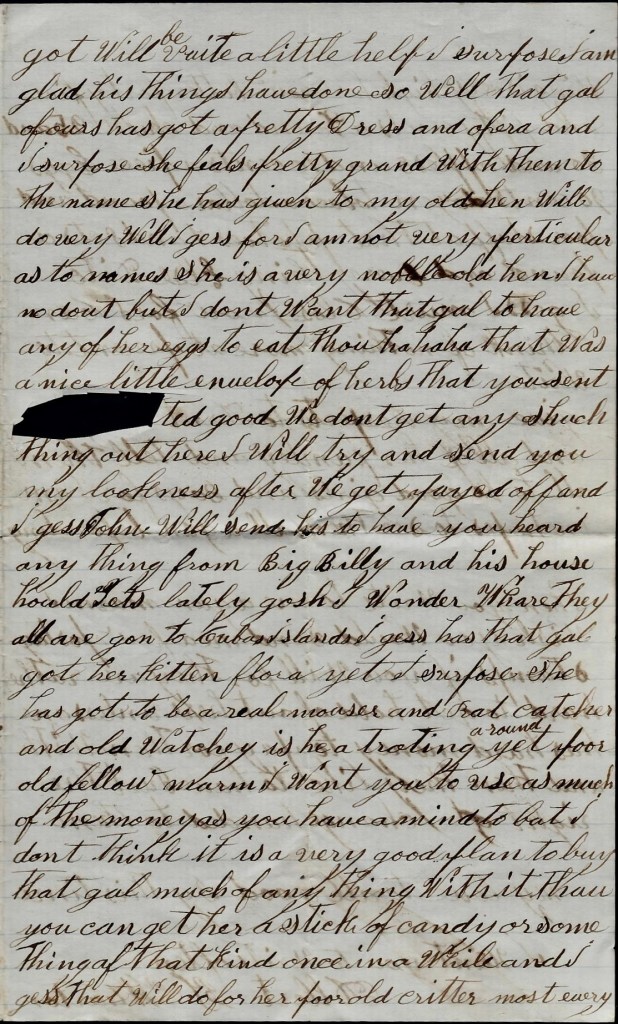 got Will be Quite a little help I surpose I am
glad his things have done so Well That gal
of ours has got a pretty Dress and opera and
I surpose she feals pretty grand With them to
the name she has given to my old hen Will
do very Well I gess for I am not very perticular
as to names She is a very old hen I have
no dout but I dont Want that gal to have
any of her eggs to eat thou hahaha that Was
a nice little envelope of herbs that you sent
ted good We dont get any shuch
thing out here I Will try and send you
my lookness after We get payed off and
I gess John Will send his to have you heard
any thing from Big Billy and his house
hould lately gosh I Wonder Whare They
all are gon to Cuban islands I gess has that gal
got her kitten flora yet I surpose she
has got to be a real mouser and Rat catcher
and old Watchey is he a troting a round yet poor
old fellow marm I Want you to use as much
of the money as you have a mind to but I
dont think it is a very good plan to buy
that gal much of any thing With it thou
you can get her a stick of candy or some
thing of that kind once in a While and I
gess that Will do for her poor old critter most every